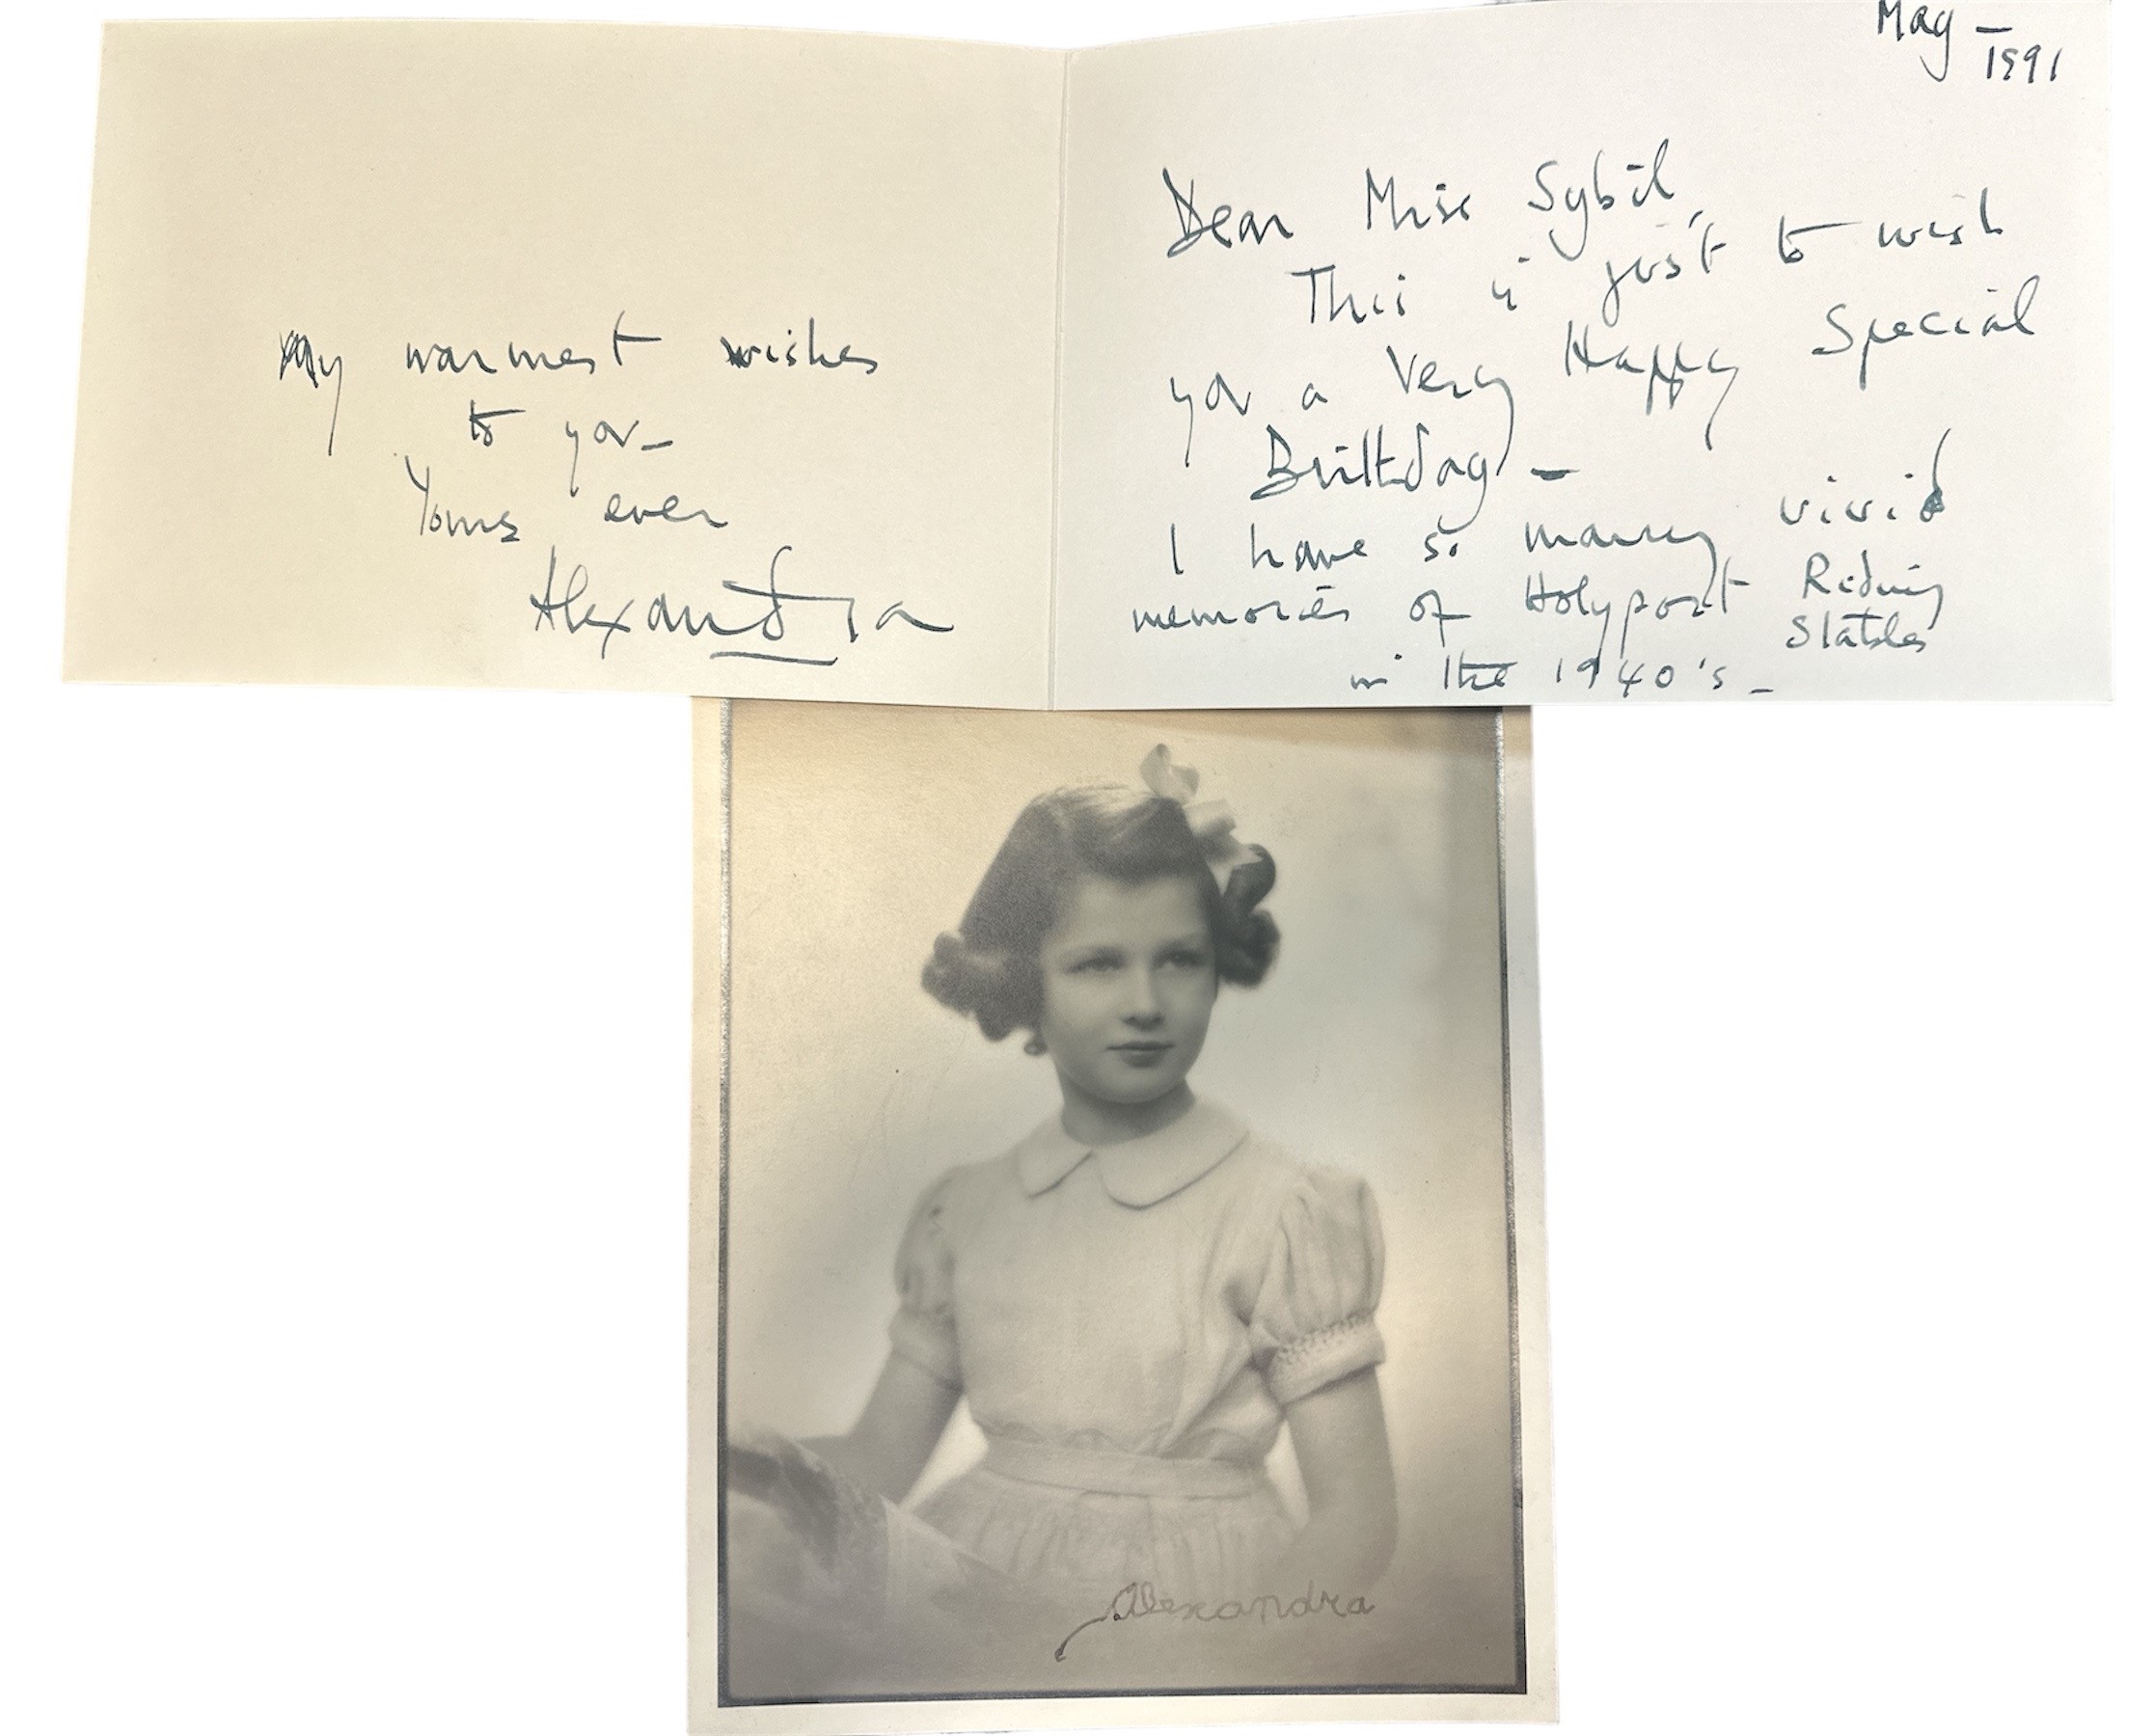 My warmest wishes
to you–
Yours ever
Alexandra
May –
1991
Dear Miss Sybil,
This is just to wish
you a very Happy Special
Birthday –
I have so many vivid
memories of Holyport Riding
Stables
in the 1940's –
Alexandra